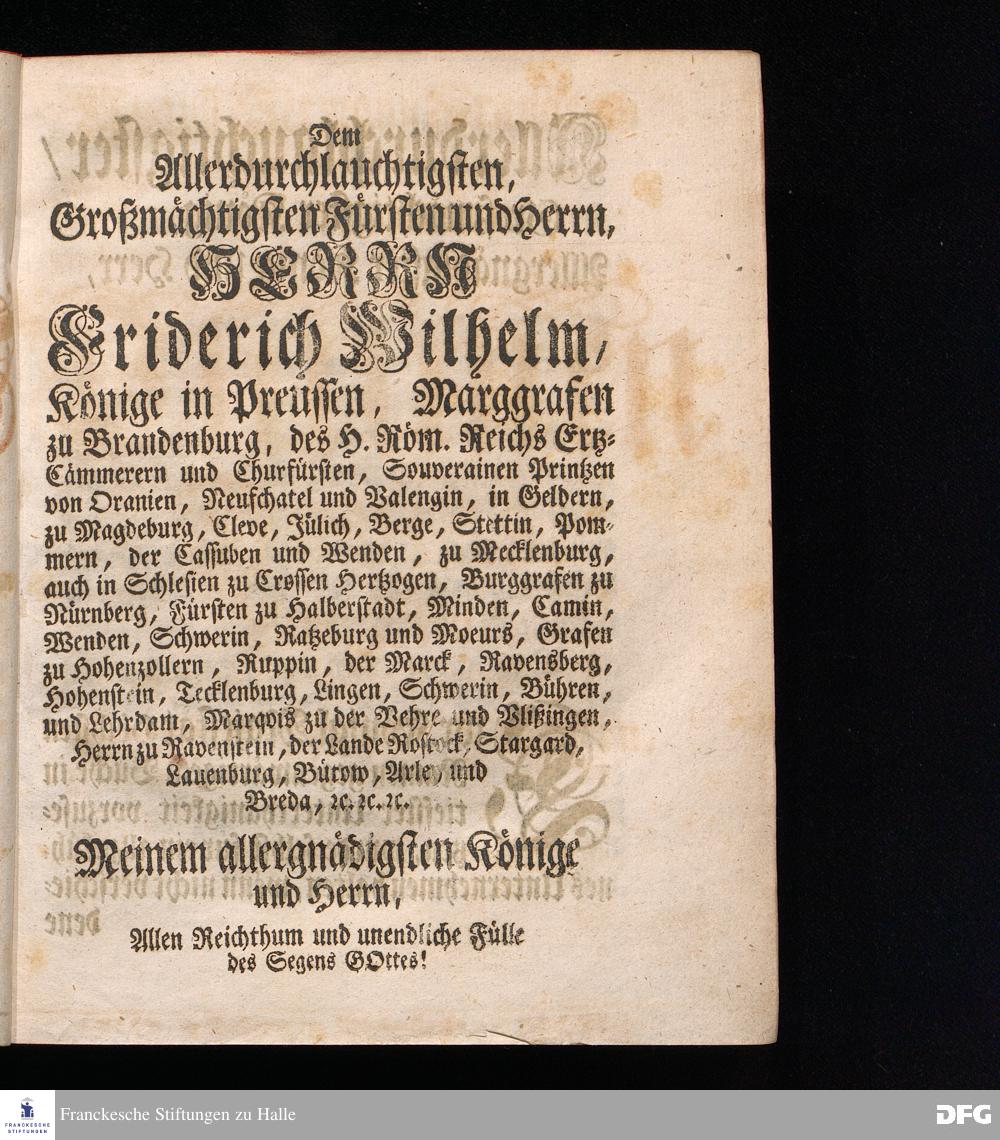 Dem
Allerdurchlauchtigsten,
Großmächtigsten Fürsten und Herrn,
HERRN
Friderich Wilhelm,
Könige in Preussen, Marggrafen
zu Brandenburg, des H. Röm. Reichs Ertz-
Cämmerern und Churfürsten, Souverainen Printzen
von Oranien, Neufchatel und Valengin, in Geldern,
zu Magdeburg, Cleve, Jülich, Berge, Stettin, Pom-
mern, der Cassuben und Wenden, zu Mecklenburg,
auch in Schlesien zu Crossen Hertzogen, Burggrafen zu
Nürnberg, Fürsten zu Halberstadt, Minden, Camin,
Wenden, Schwerin, Ratzeburg und Moeurs, Grafen
zu Hohenzollern, Ruppin, der Marck, Ravensberg,
Hohenstein, Tecklenburg, Lingen, Schwerin, Bühren,
und Lehrdam, Marqvis zu der Vehre und Vlißingen,
Herrn zu Ravenstein, der Lande Rostock, Stargard,
Lauenburg, Bütow, Arley und
Breda, ꝛc. ꝛc. ꝛc.
Meinem allergnädigsten Könige
und Herrn,
Allen Reichthum und unendliche Fülle
des Segens GOttes!
FRANCKESCHE
STIFTUNGEN
Franckesche Stiftungen zu Halle
DFG